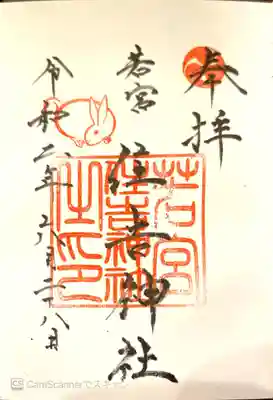 奉拝
若宮
住吉神社
令和二年六月二十八日
若宮
住吉神
之印
CS CamScannerでスキャン